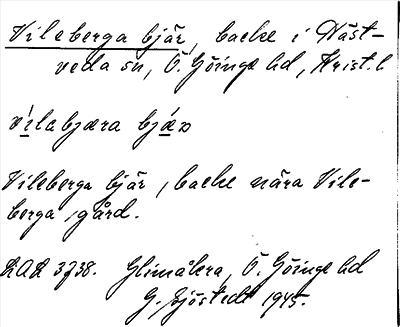 Vileberga bjär, backe i Näst-
veda sn, Ö. Göinge hd, Krist. l
vilabjæra bjær
Vileberga bjär, backe nära Vile-
berga, gård.
RAÄ 3738. Glimåkra, Ö. Göinge hd
G. Sjöstedt 1945.